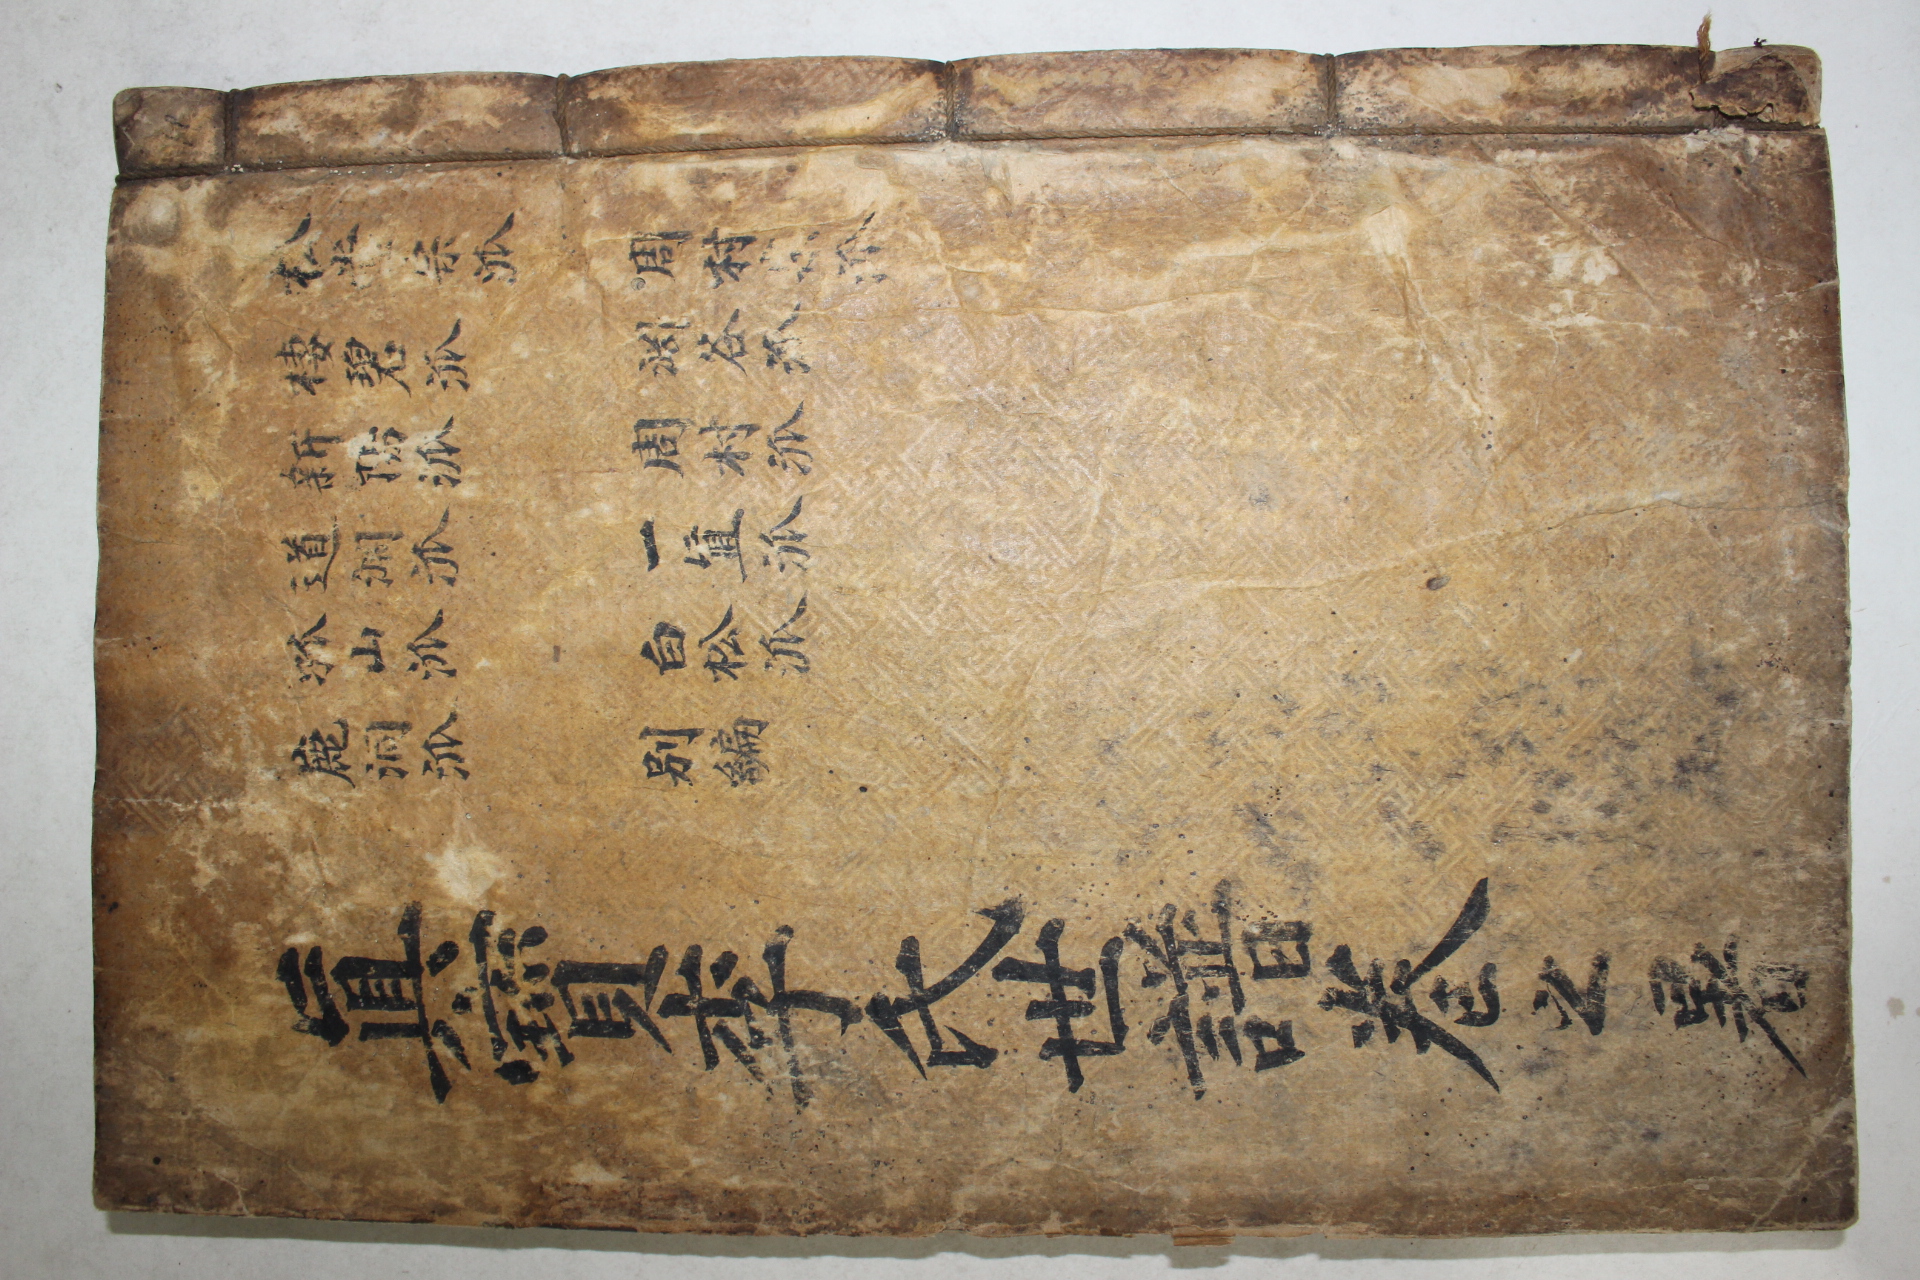 松堂宗派
棲碧派
新陽派
道澗派
孤山派
鹿洞派
周村宗派
澗谷派
周村派
一直派
白松派
別編
眞寶李氏世譜卷之暑